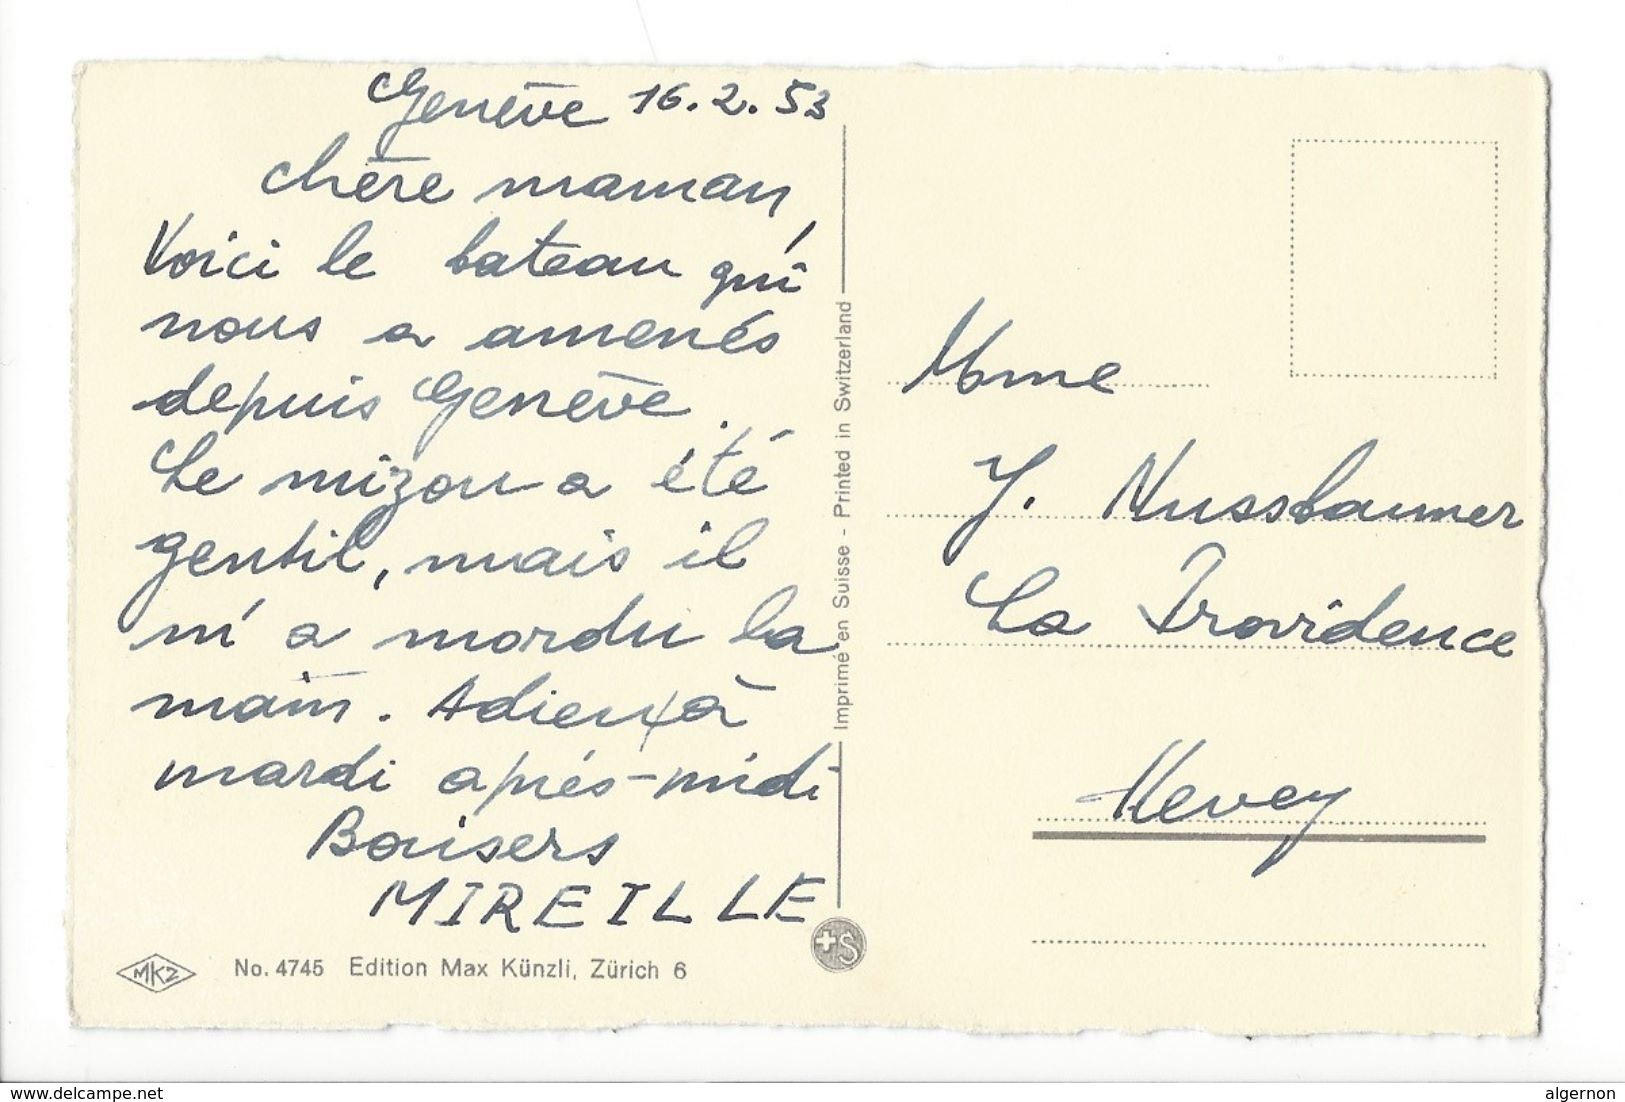 Genève 16.2.53
chère maman,
Voici le bateau qui
nous a amenés
depuis Genève.
Le mizou a été
gentil, mais il
m'a mordu la
main. Adieu, à
mardi après-midi
Baisers
MIREILLE
MKZ No. 4745 Edition Max Künzli, Zürich 6
Imprimé en Suisse - Printed in Switzerland
+S
Mme
J. Nussbaumer
La Providence
Vevey
www.delcampe.net
algernon